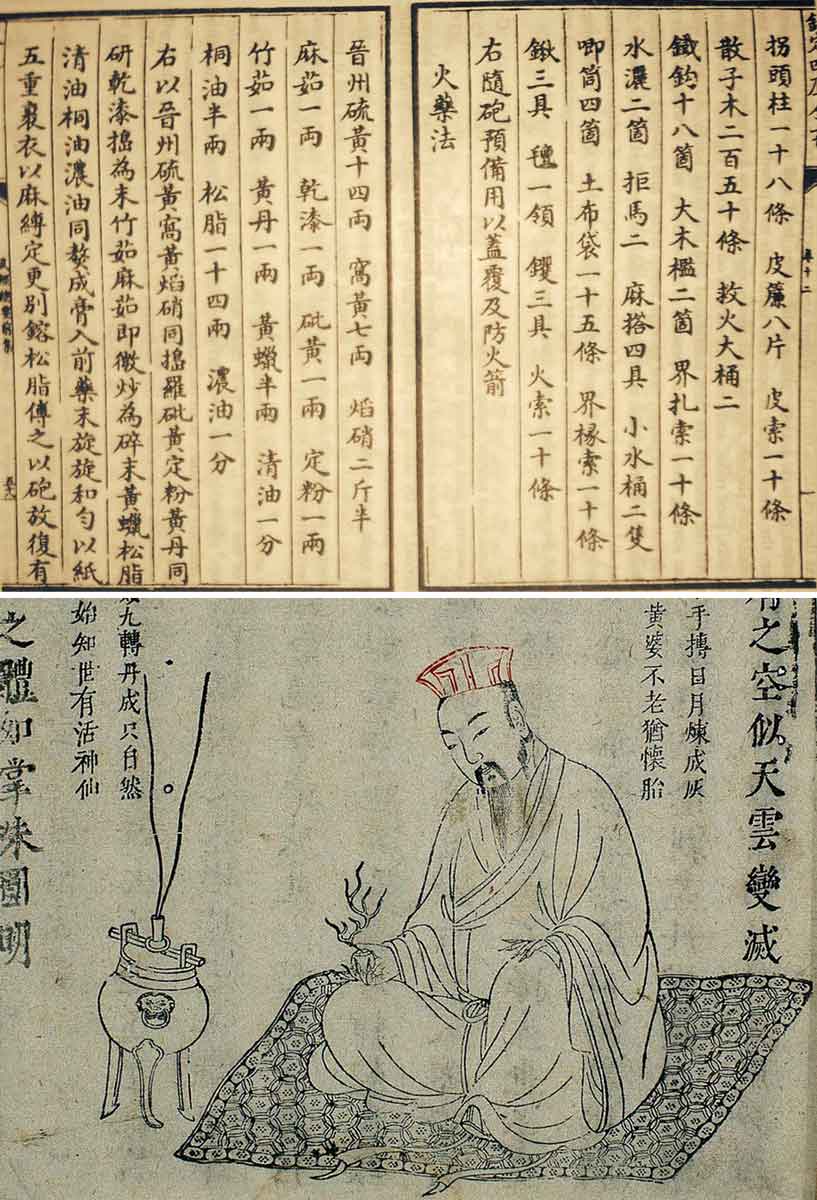 卷十二
拐頭柱一十八條 皮簾八片 皮索一十條
散子木二百五十條 救火大桶二
鐵鈎十八箇 大木檻二箇 界扎索一十條
水 二箇 拒馬二 麻搭四具 小水桶二隻
唧筒四箇 土布袋一十五條 界椽索一十條
鍬三具 氊一領 钁三具 火索一十條
右隨砲預備用以蓋覆及防火箭
火藥法
晉州硫黃十四兩 窩黃七兩 焰硝二斤半
麻茹一兩 乾漆一兩 砒黃一兩 定粉一兩
竹茹一兩 黃丹一兩 黃蠟半兩 清油一分
桐油半兩 松脂一十四兩 濃油一分
右以晉州硫黃窩黃焰硝同搗羅砒黃定粉黃丹同
研乾漆搗為末竹茹麻茹即微炒為碎末黃蠟松脂
清油桐油濃油同熬成膏入前藥末旋旋和勻以紙
五重裹衣以麻縛定更別鎔松脂傅之以砲放復有
之空似天雲變滅
手摶日月煉成灰
黃婆不老猶懷胎
九轉丹成只自然
始知世有活神仙
之體如掌珠圓明